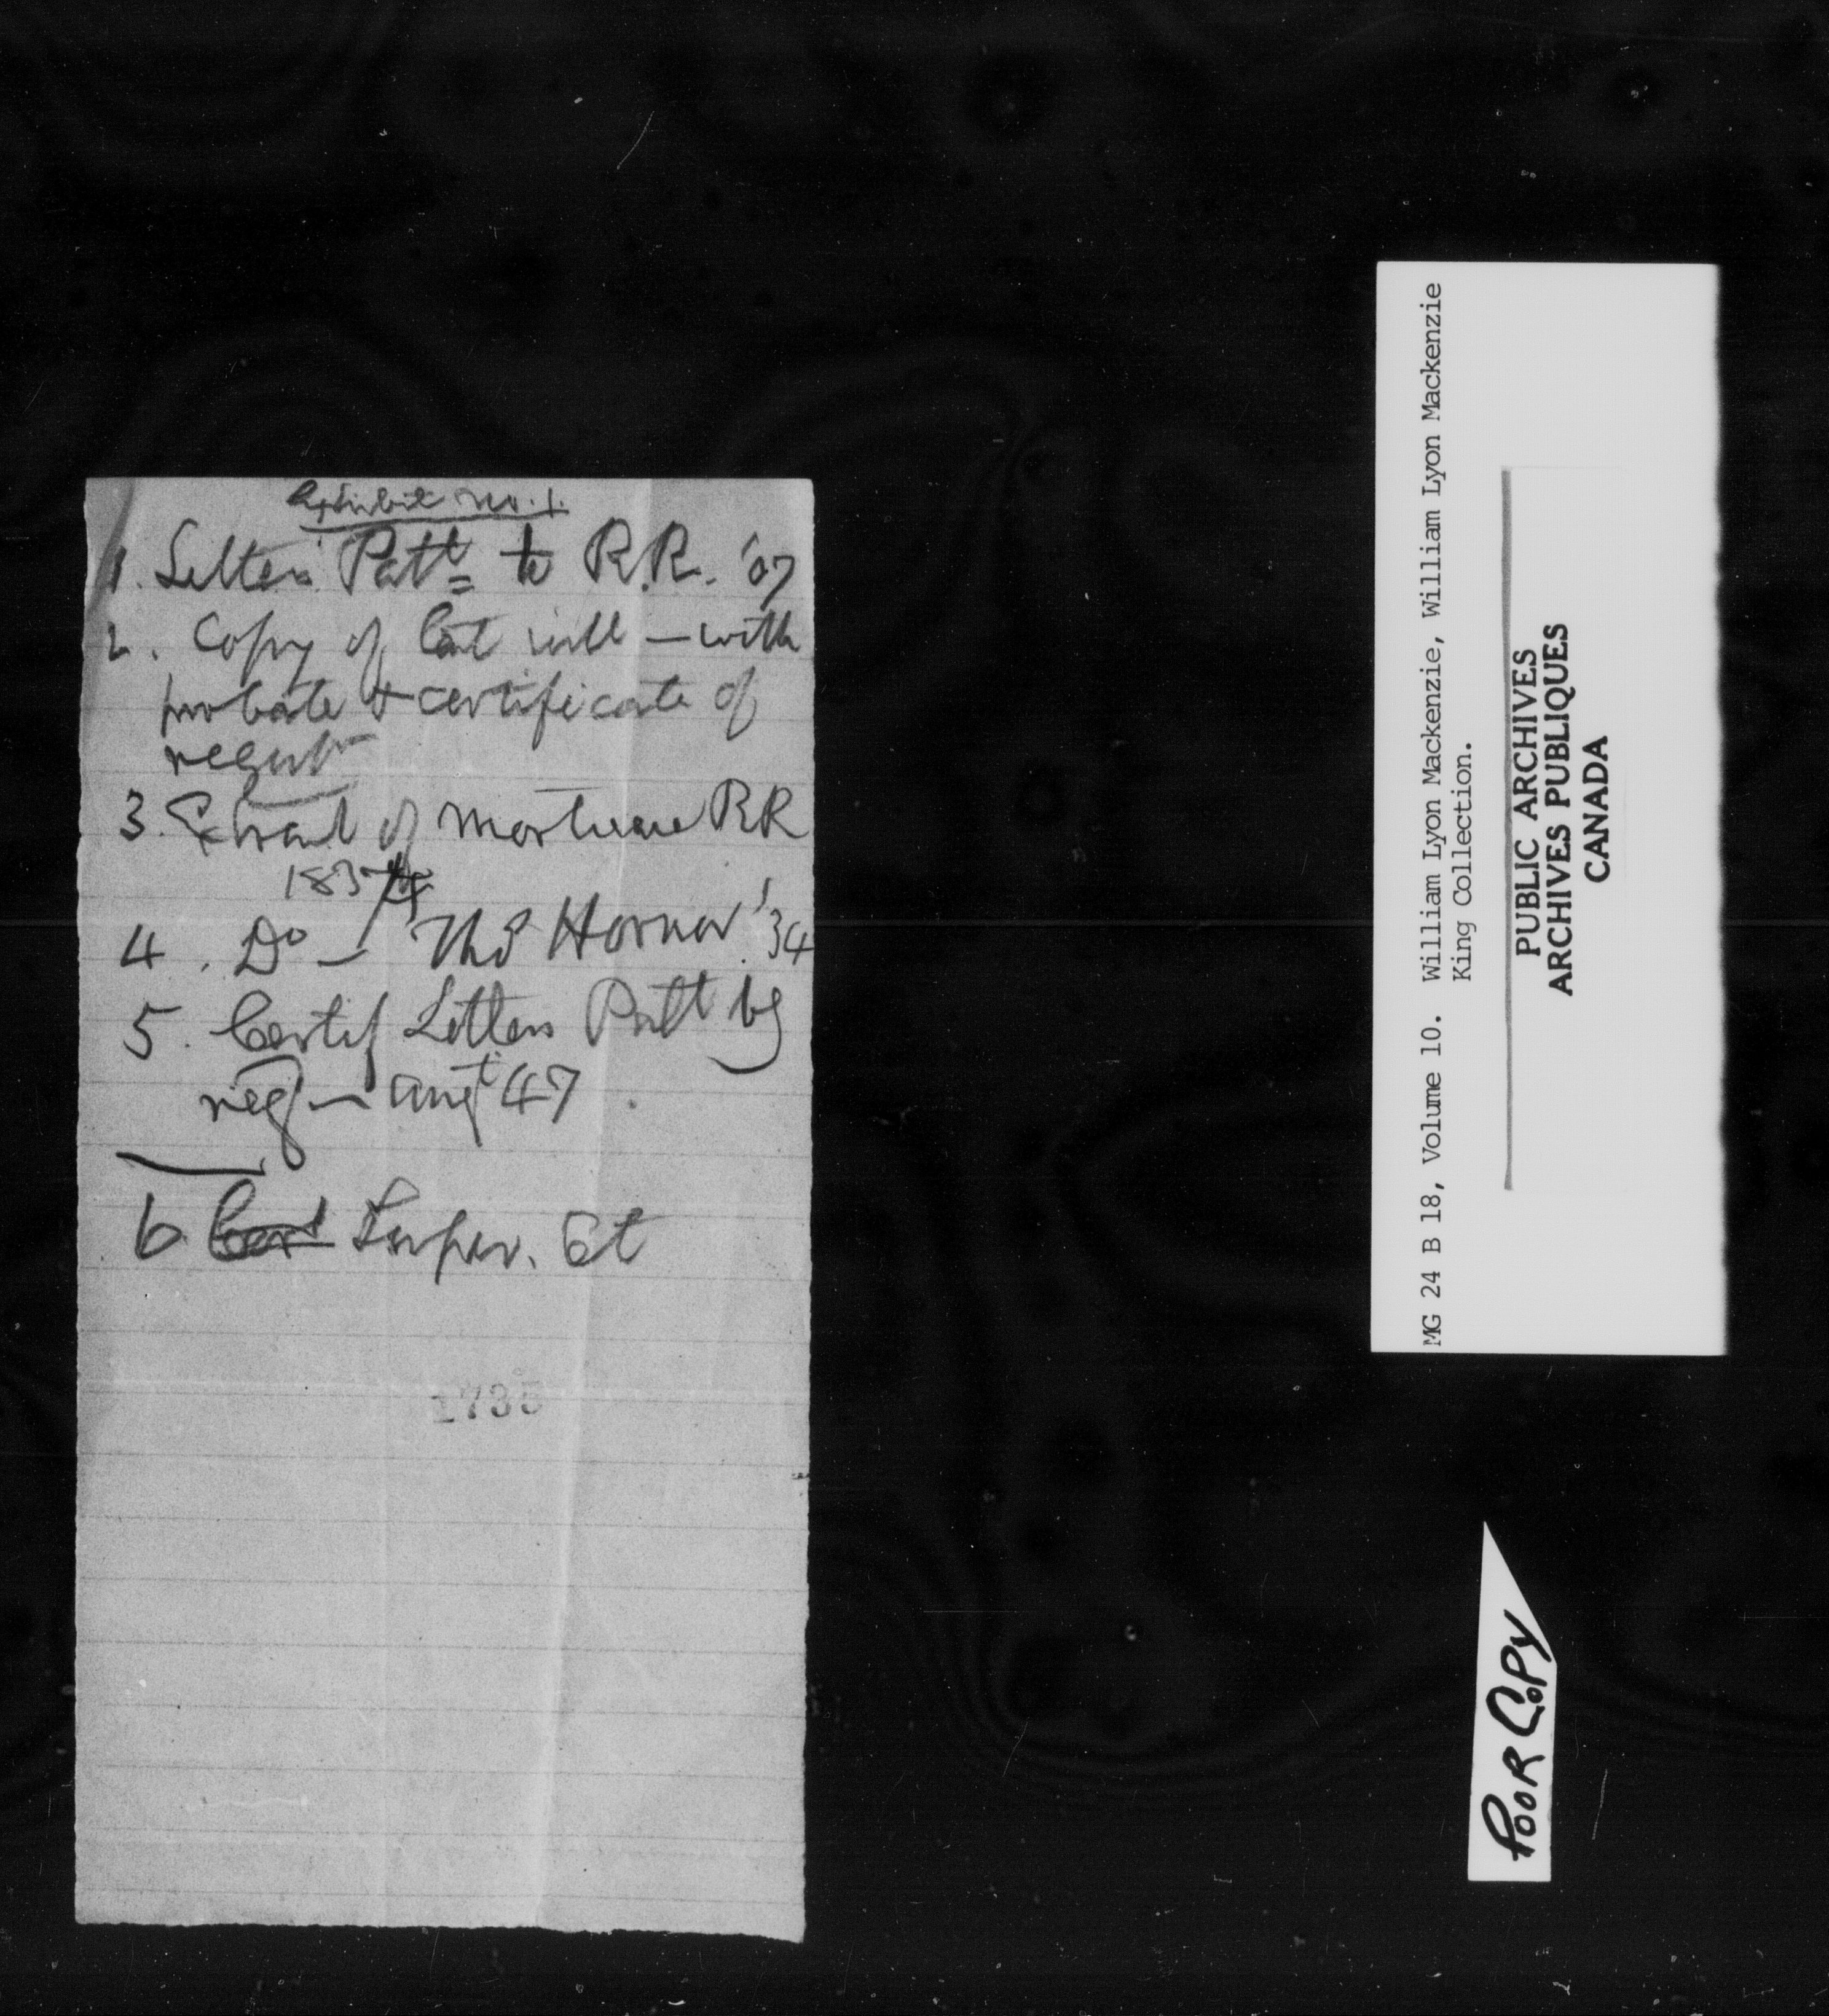 Exhibit No. 1.
1. Letters Patt to R.R. '07
2. Copy of last will – with
probate & certificate of
registr
3. Extract of mortuare RR
1834
4. Do – Ths Horner '34
5. Certif Letters Patt by
reg – augt 47
6 Cert Super. Ct
1735
MG 24 B 18, Volume 10. William Lyon Mackenzie, William Lyon Mackenzie
King Collection.
PUBLIC ARCHIVES
ARCHIVES PUBLIQUES
CANADA
POOR COPY